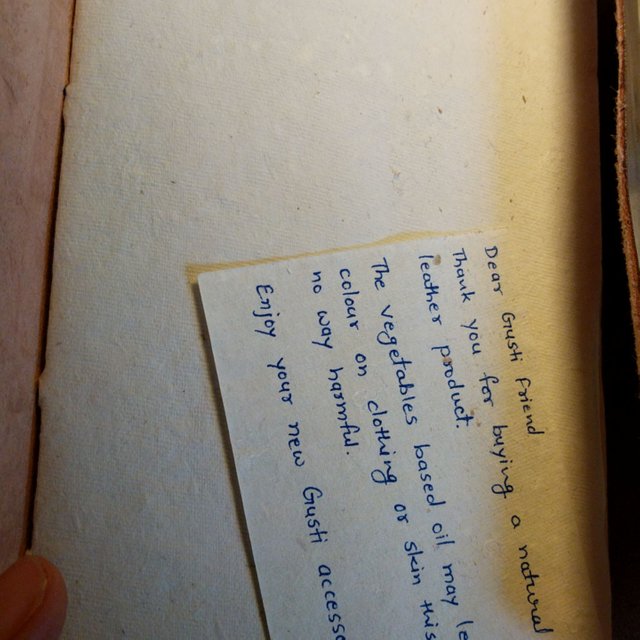 Dear Gusti friend
Thank you for buying a natural
leather product.
The vegetables based oil may le
colour on clothing or skin this
no way harmful.
Enjoy your new Gusti accesso